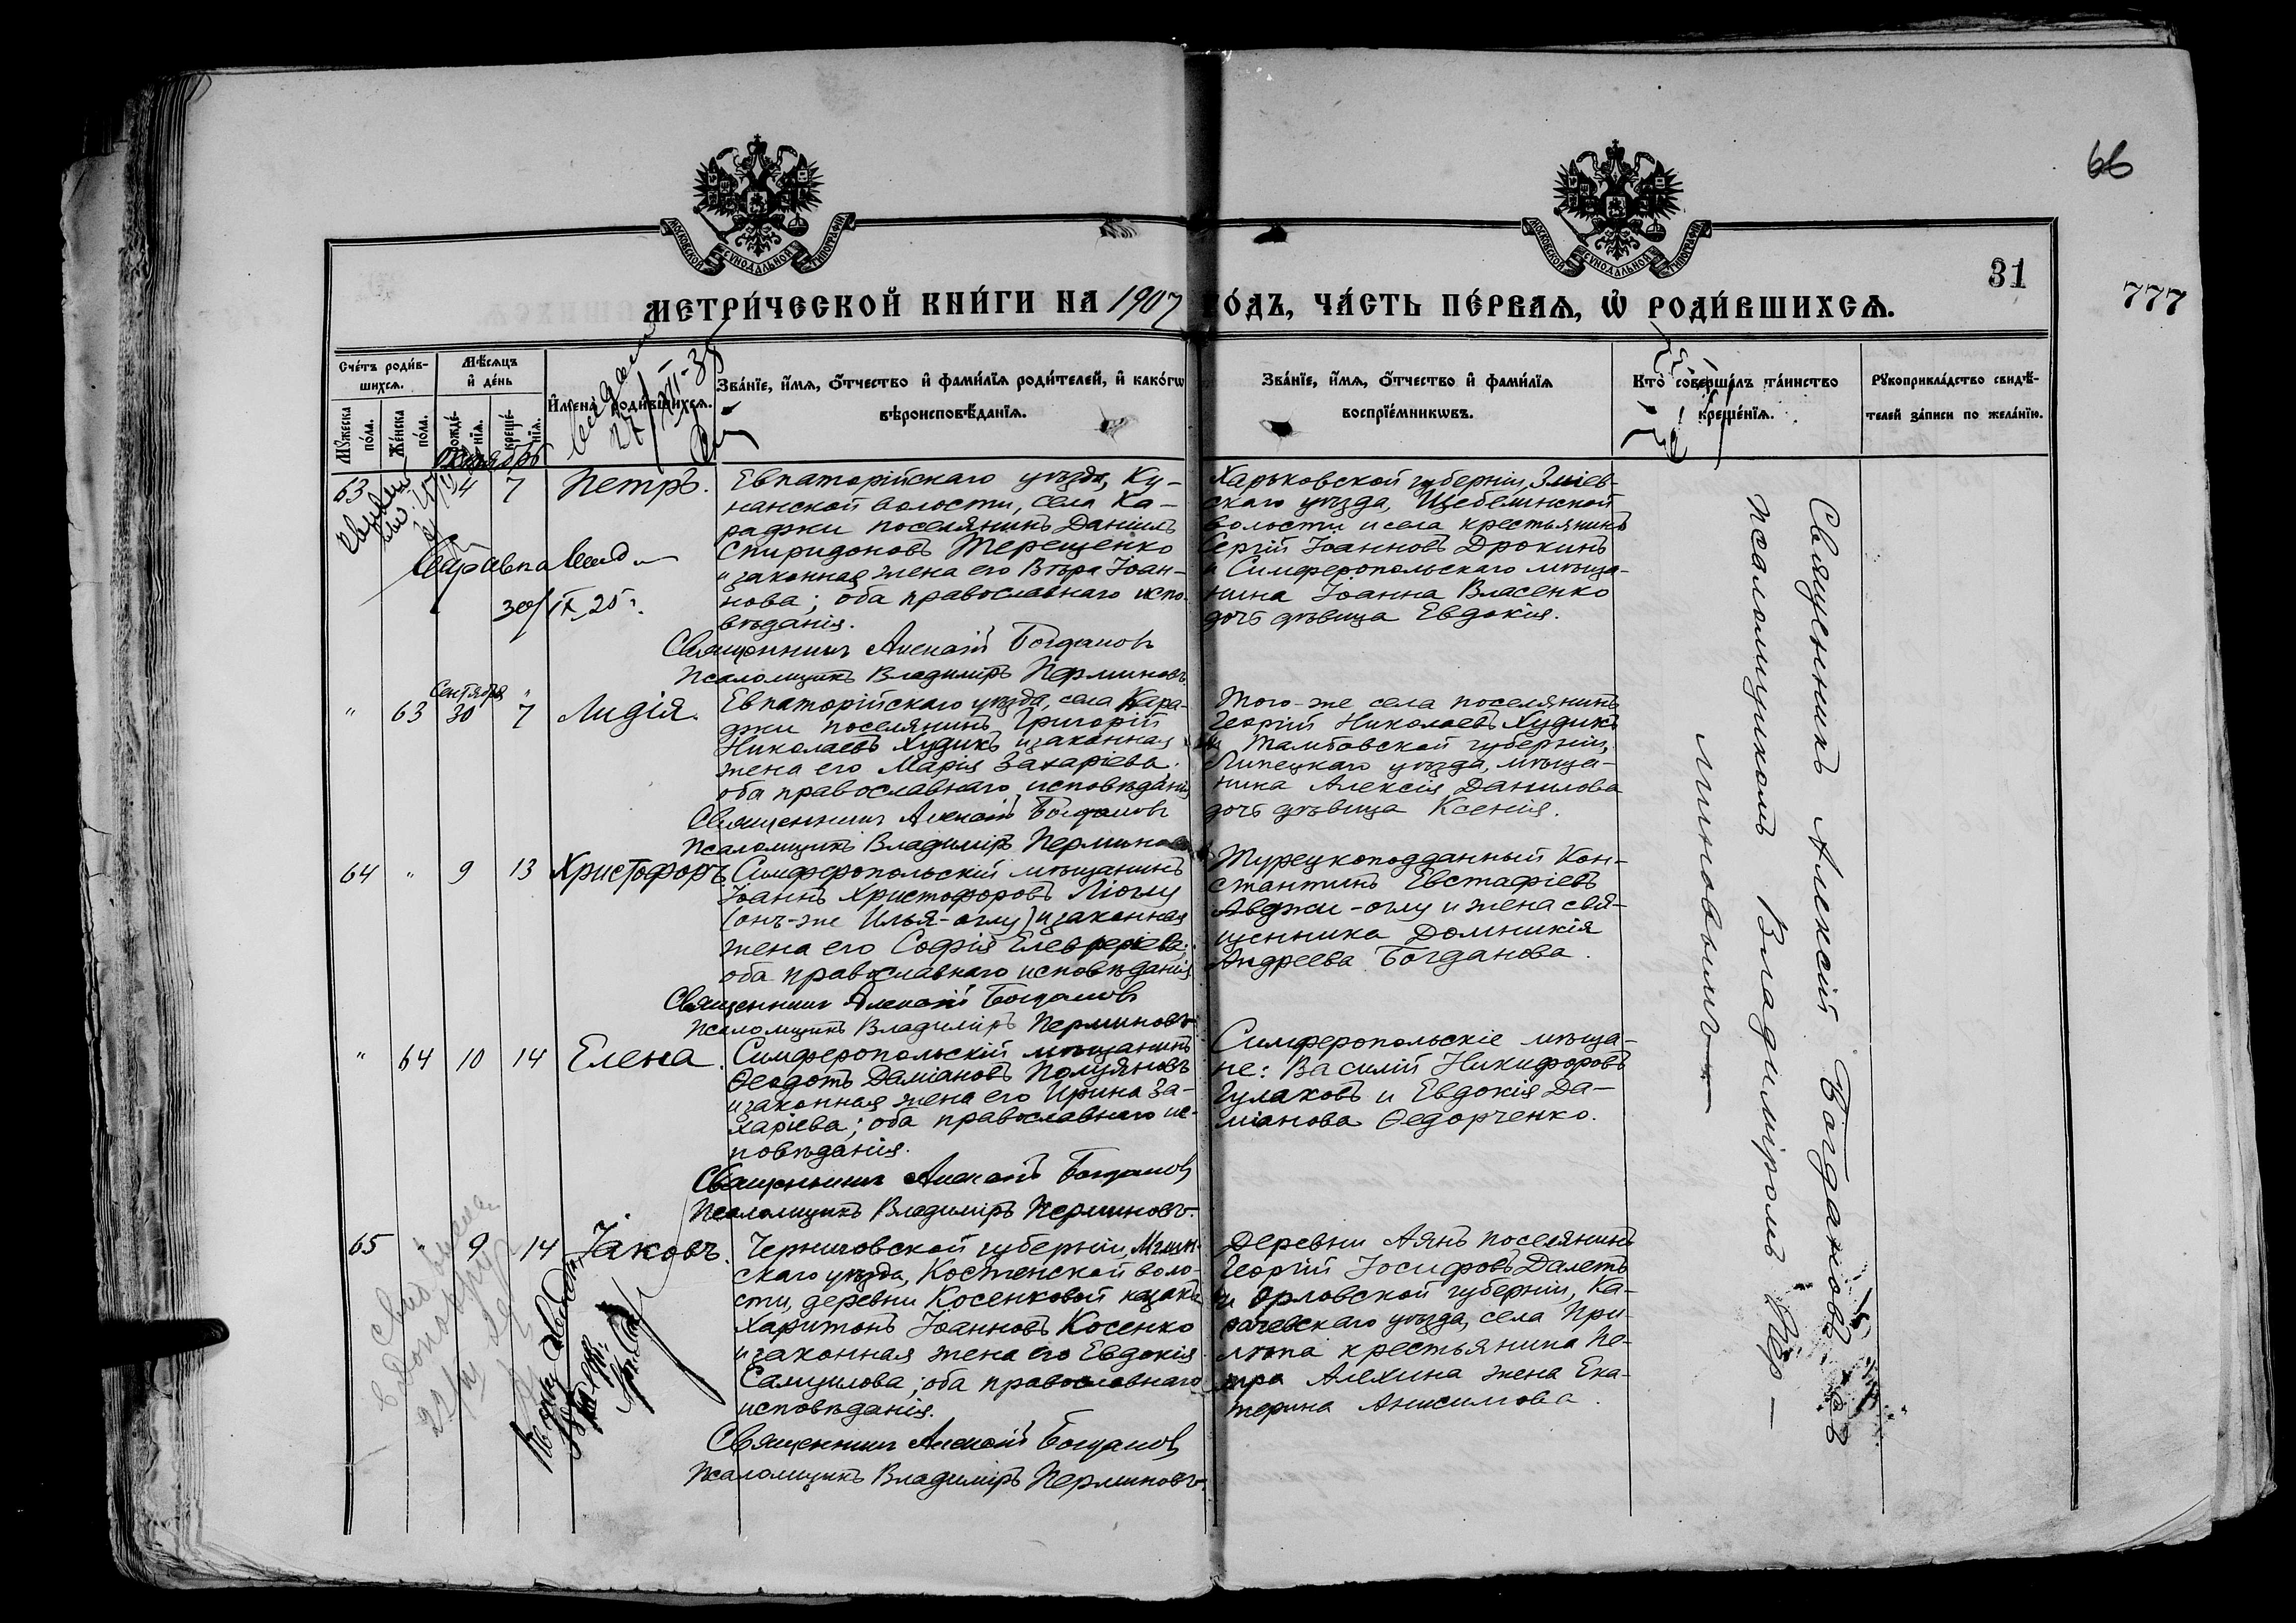 66
31
777
МОСКОВСКОЙ СѴНОДАЛЬНОЙ ТИПОГРАФІИ
МОСКОВСКОЙ СѴНОДАЛЬНОЙ ТИПОГРАФІИ
МЕТРИ́ЧЕСКОЙ КНИ́ГИ НА 1907 ГО́ДЪ, ЧА́СТЬ ПЕ́РВАѦ, Ѡ҆ РОДИ́ВШИХСѦ.
Сче́тъ роди́в-
шихсѧ.
Мꙋ́жеска по́ла.
Же́нска по́ла.
Мѣ́сѧцъ
и҆ де́нь
рожде́-
нїѧ.
креще́-
нїѧ.
И҆мена̀ роди́вшихсѧ.
Зва́нїе, и҆́мѧ, ѻ҆́тчество и҆ фами́лїѧ роди́телей, и҆ како́гѡ
вѣроисповѣ́данїѧ.
Зва́нїе, и҆́мѧ, ѻ҆́тчество и҆ фами́лїѧ
воспрїе́мникѡвъ.
Кто̀ соверша́лъ та́инство
креще́нїѧ.
Рꙋкоприкла́дство свидѣ́-
телей за́писи по жела́нїю.
27/XII-35
Октябрь
63 4 7 Петръ.
Евпаторійскаго уѣзда, Ку-
нанской волости, села Ка-
раджи поселянинъ Даніилъ
Спиридоновъ Терещенко
и законная жена его Вѣра Іоан-
нова; оба православнаго испо-
вѣданія.
Священникъ Алексій Богдановъ
Псаломщикъ Владиміръ Перминовъ.
Харьковской губерніи, Зміев-
скаго уѣзда, Шебелинской
волости и села крестьянинъ
Сергій Іоанновъ Дрокинъ
и Симферопольскаго мѣща-
нина Іоанна Власенко
дочь дѣвица Евдокія.
Справка
30/IX 25 г.
Сентября
" 63 30 7 Лидія.
Евпаторійскаго уѣзда, села Кара-
джи поселянинъ Григорій
Николаевъ Худикъ и законная
жена его Марія Захаріева;
оба православнаго исповѣданія
Священникъ Алексій Богдановъ
Псаломщикъ Владиміръ Перминовъ
Того-же села поселянинъ
Георгій Николаевъ Худикъ
и Тамбовской губерніи,
Липецкаго уѣзда, мѣща-
нина Алексія Данилова
дочь дѣвица Ксенія.
64 " 9 13 Христофоръ.
Симферопольскій мѣщанинъ
Іоаннъ Христофоровъ
(онъ-же Илья-оглу) и законная
жена его Софія Елевферіева;
оба православнаго исповѣданія
Священникъ Алексій Богдановъ
Псаломщикъ Владиміръ Перминовъ
Турецкоподданный Кон-
стантинъ Евстафіевъ
Авджи-оглу и жена свя-
щенника Домникія
Андреева Богданова.
" 64 10 14 Елена.
Симферопольскій мѣщанинъ
Ѳеодотъ Даміановъ Полуяновъ
и законная жена его Ирина За-
харіева; оба православнаго ис-
повѣданія.
Священникъ Алексій Богдановъ
Псаломщикъ Владиміръ Перминовъ.
Симферопольскіе мѣща-
не: Василій Никифоровъ
Гулаковъ и Евдокія Да-
міанова Ѳедорченко.
65 " 9 14 Іаковъ.
Черниговской губерніи, Мглин-
скаго уѣзда, Костенской воло-
сти, деревни Косенковой казакъ
Харитонъ Іоанновъ Косенко
и законная жена его Евдокія
Самуилова; оба православнаго
исповѣданія.
Священникъ Алексій Богдановъ
Псаломщикъ Владиміръ Перминовъ.
Деревни Аянъ поселянинъ
Георгій Іосифовъ Далетъ
и Орловской губерніи, Ка-
рачевскаго уѣзда, села При-
лѣпа крестьянина Пе-
тра Алехина жена Ека-
терина Анисимова.
Священникъ Алексій Богдановъ съ
псаломщикомъ Владиміромъ Пер-
миновымъ